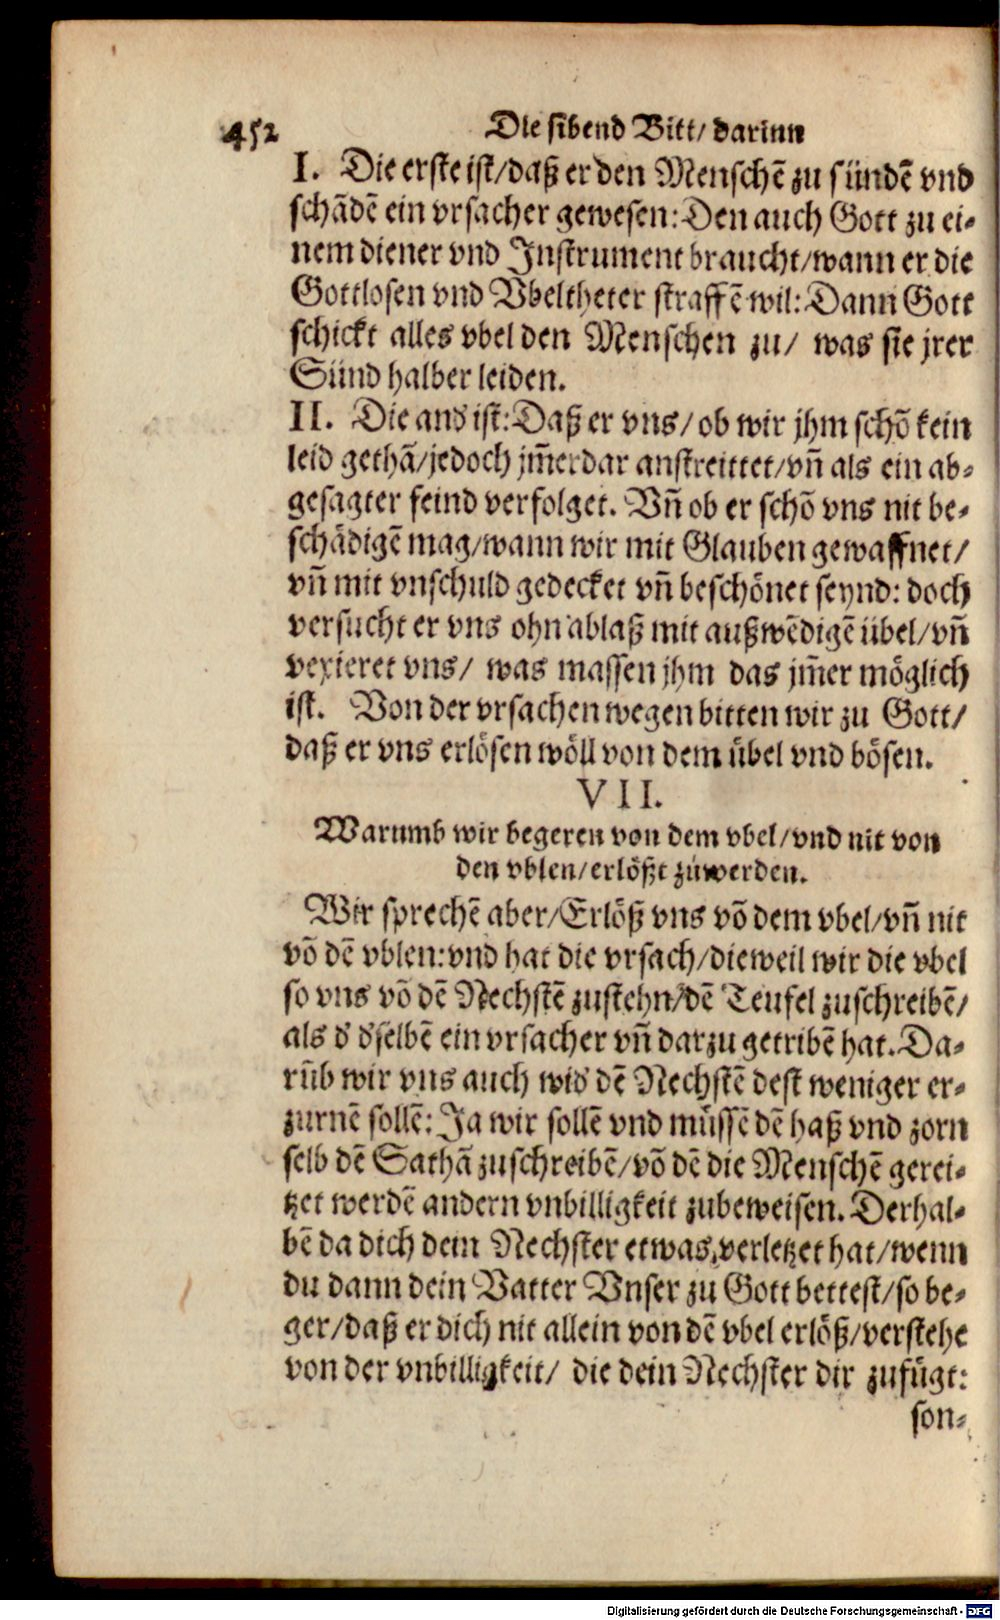 452 Die sibend Bitt/ darinn
I. Die erste ist/daß er den Menschẽ zu sündẽ vnd
schãdẽ ein vrsacher gewesen: Den auch Gott zu ei-
nem diener vnd Instrument braucht/wann er die
Gottlosen vnd Vbeltheter straffẽ wil: Dann Gott
schickt alles vbel den Menschen zu/ was sie jrer
Sünd halber leiden.
II. Die and ist: Daß er vns/ ob wir jhm schõ kein
leid gethã/jedoch jm̃erdar anstreittet/vñ als ein ab-
gesagter feind verfolget. Vñ ob er schõ vns nit be-
schädigẽ mag/wann wir mit Glauben gewaffnet/
vñ mit vnschuld gedecket vñ beschönet seynd: doch
versucht er vns ohn ablaß mit außwẽdigẽ übel/vñ
vexieret vns/ was massen jhm das jm̃er möglich
ist. Von der vrsachen wegen bitten wir zu Gott/
daß er vns erlösen wöll von dem übel vnd bösen.
VII.
Warumb wir begeren von dem vbel/vnd nit von
den vblen/erlößt zůwerden.
Wir sprechẽ aber/Erlöß vns võ dem vbel/vñ nit
võ dẽ vblen: vnd hat die vrsach/dieweil wir die vbel
so vns võ dẽ Nechstẽ zustehn/dẽ Teufel zuschreibẽ/
als d dselbẽ ein vrsacher vñ darzu getribẽ hat. Da-
rũb wir vns auch wid dẽ Nechstẽ dest weniger er-
zurnẽ sollẽ: Ja wir sollẽ vnd müssẽ dẽ haß vnd zorn
selb dẽ Sathã zuschreibẽ/võ dẽ die Menschẽ gerei-
tzet werdẽ andern vnbilligkeit zubeweisen. Derhal-
bẽ da dich dein Nechster etwas verletzet hat/wenn
du dann dein Vatter Vnser zu Gott bettest/so be-
ger/daß er dich nit allein von dẽ vbel erlöß/verstehe
von der vnbilligkeit/ die dein Nechster dir zufügt:
son-
Digitalisierung gefördert durch die Deutsche Forschungsgemeinschaft - DFG